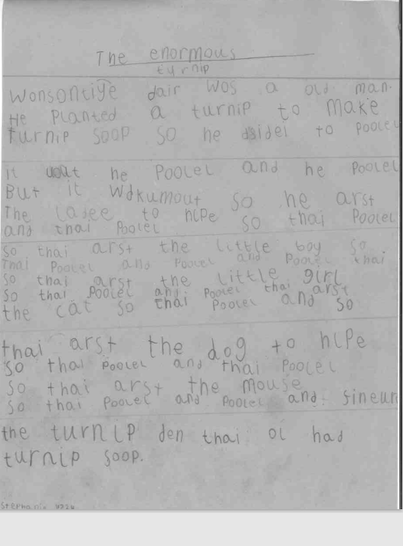 The enormous
turnip
Wonsontige dair wos a old man.
He Planted a turnip to make
turnip soop so he disidel to Poolel
it he Poolel and he Poolel
But it Wdkumout so he arst
The Ladee to hlpe so thai Poolel
and thai Poolel
so thai arst the little boy so
thai Poolel and Poolel and Poolel thai
so thai arst the little girl
so thai Poolel and Poolel thai arst
the cat so thai Poolel and so
thai arst the dog to hlpe
so thai Poolel and thai Poolel
so thai arst the mouse
so thai Poolel and Poolel and
the turnip den thai ol had
turnip soop.